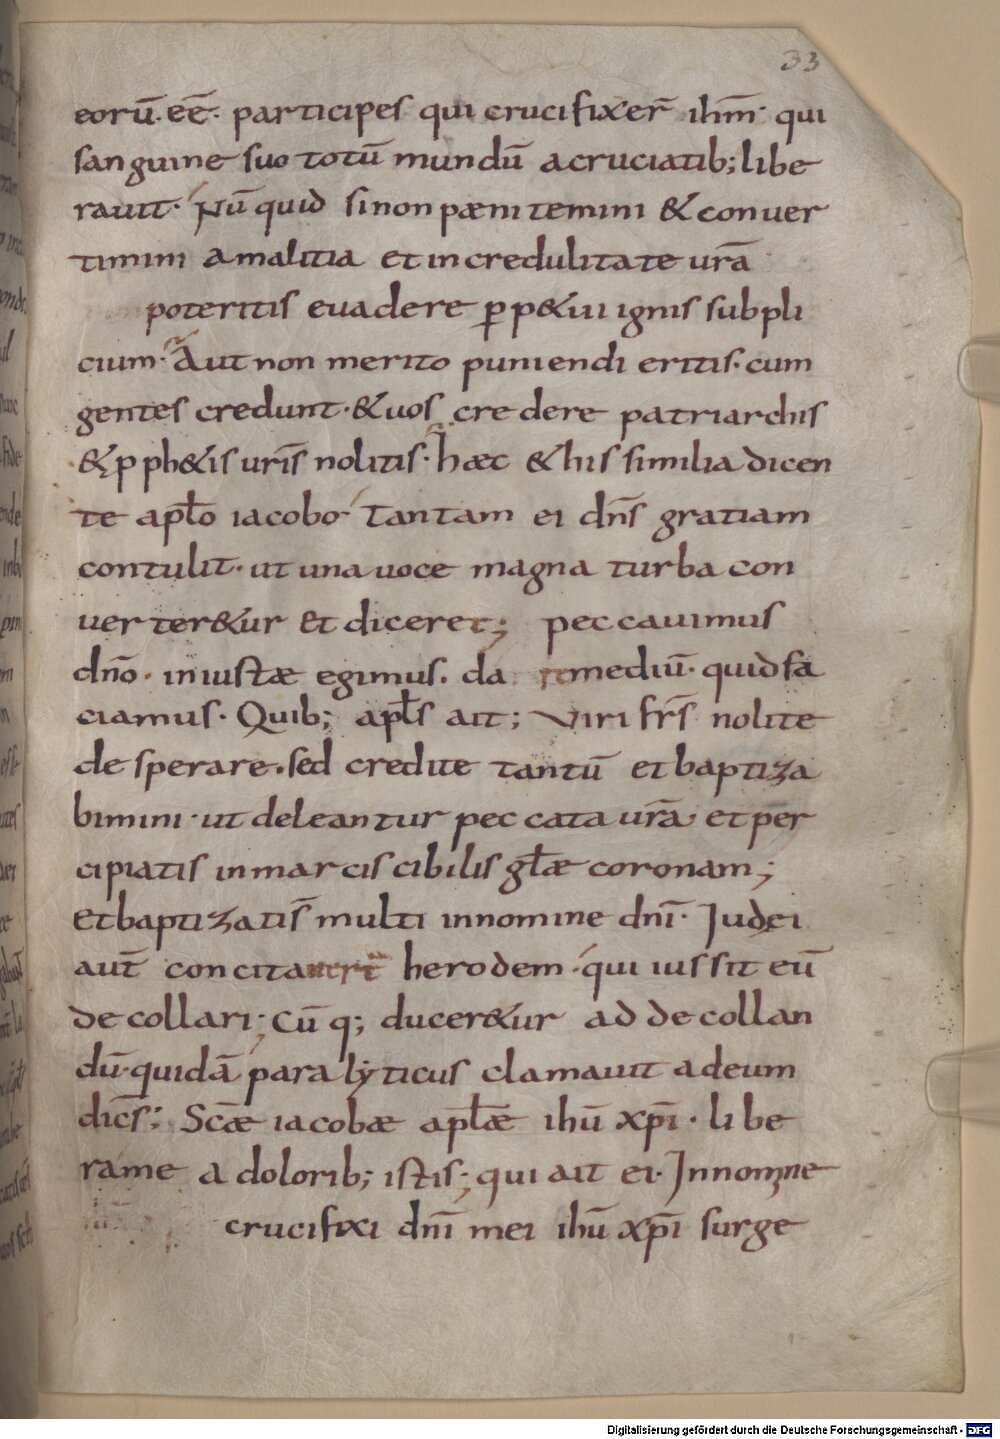 33
eorū· eē· participes qui crucifixer̄ ihm̄· qui
sanguine suo totū mundū acruciatib; libe
rauit· Nū quid sinon pænitemini & conuer
timini amalitia et incredulitate urā
poteritis euadere ꝑp&ui ignis subpli
cium· Aut non merito puniendi eritis· cum
gentes credunt· & uos credere patriarchis
& pph&is urīs nolitis· hæc & his similia dicen
te apl̄o iacobo· Tantam ei dn̄s gratiam
contulit· ut una uoce magna turba con
uerter&ur Et diceret; peccauimus
dn̄o· iniustæ egimus· da remediū· quid fa
ciamus· Quib; apl̄s ait; Viri fr̄s nolite
desperare· sed credite tantū et baptiza
bimini· ut deleantur peccata urā· et per
cipiatis inmarciscibilis gl̄æ coronam;
Et baptizatis̄ multi innomine dn̄i· Iudei
aut̄ concitauer̄t herodem· qui iussit eū
decollari; Cū q; ducer&ur ad decollan
dū· quidā paralyticus clamauit adeum
dic̄s; Sc̄æ iacobæ apl̄æ ihū xp̄i· libe
rame a dolorib; istis; qui ait ei· Innomine
crucifixi dn̄i mei ihū xp̄i surge
Digitalisierung gefördert durch die Deutsche Forschungsgemeinschaft - DFG